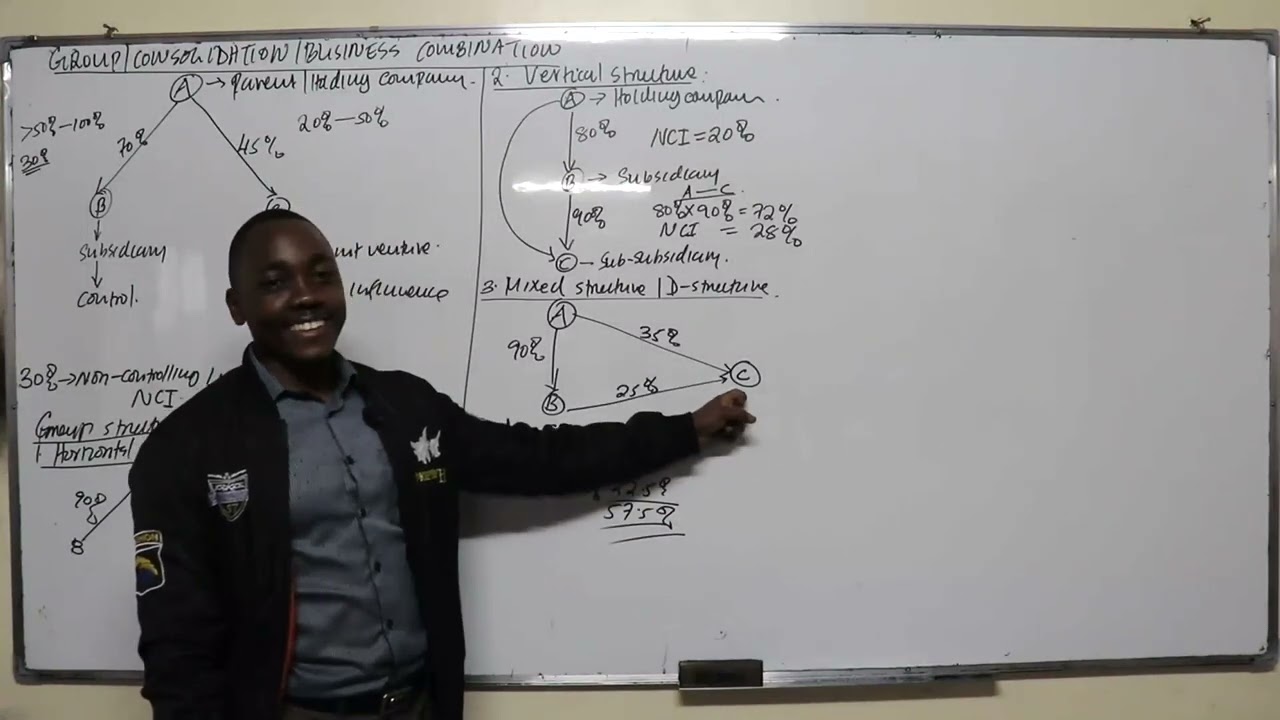 GROUP/CONSOLIDATION/BUSINESS COMBINATION
A → parent/Holding company.
>50%-100%
30%
70%
45%
20%-50%
B
Subsidiary
control.
venture.
influence
30% → Non-controlling
NCI.
Group
1 Horizontal
90%
B
2. Vertical structure.
A → Holding company.
80%
NCI = 20%
B → Subsidiary
90%
A - C.
80% x 90% = 72%
NCI = 28%
C - Sub-subsidiary.
3. Mixed structure / D-structure.
A
90%
35%
C
25%
B
57.5%